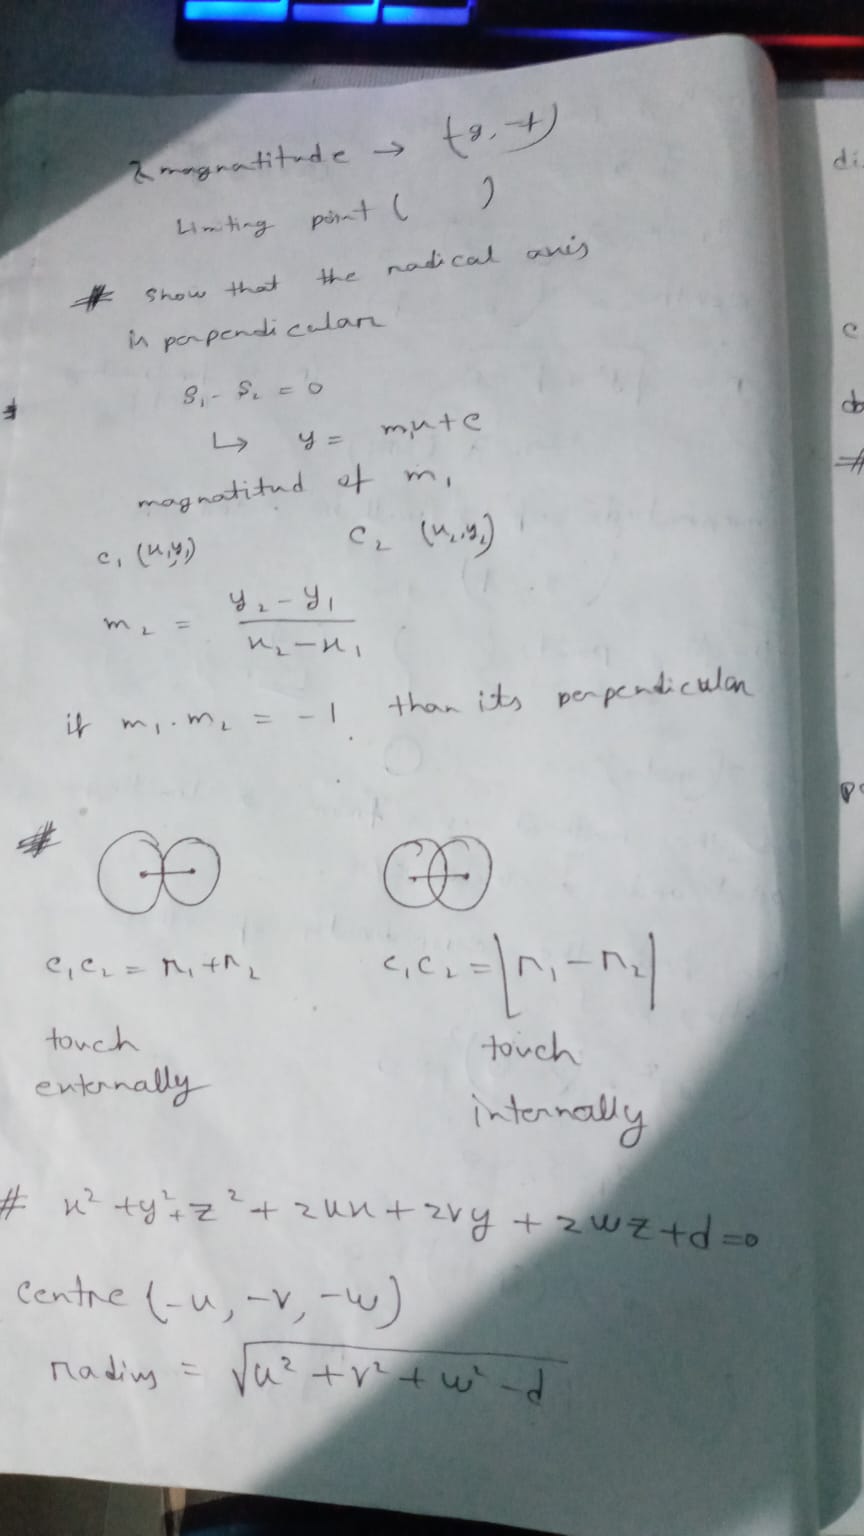 λ magnatitude → (-g, -f)
Limiting point (     )
# show that the radical axis
is perpendicular
S₁ - S₂ = 0
↳ y = m₁x + c
magnatitud of m₁
c₁ (x₁y₁)   C₂ (x₂,y₂)
m₂ = (y₂ - y₁)/(x₂ - x₁)
if m₁ . m₂ = -1. than its perpendicular
#
c₁c₂ = r₁ + r₂   c₁c₂ = |r₁ - r₂|
touch   touch
externally   internally
# x² + y² + z² + 2ux + 2vy + 2wz + d = 0
centre (-u, -v, -w)
radius = √(u² + v² + w² - d)
di
c
#